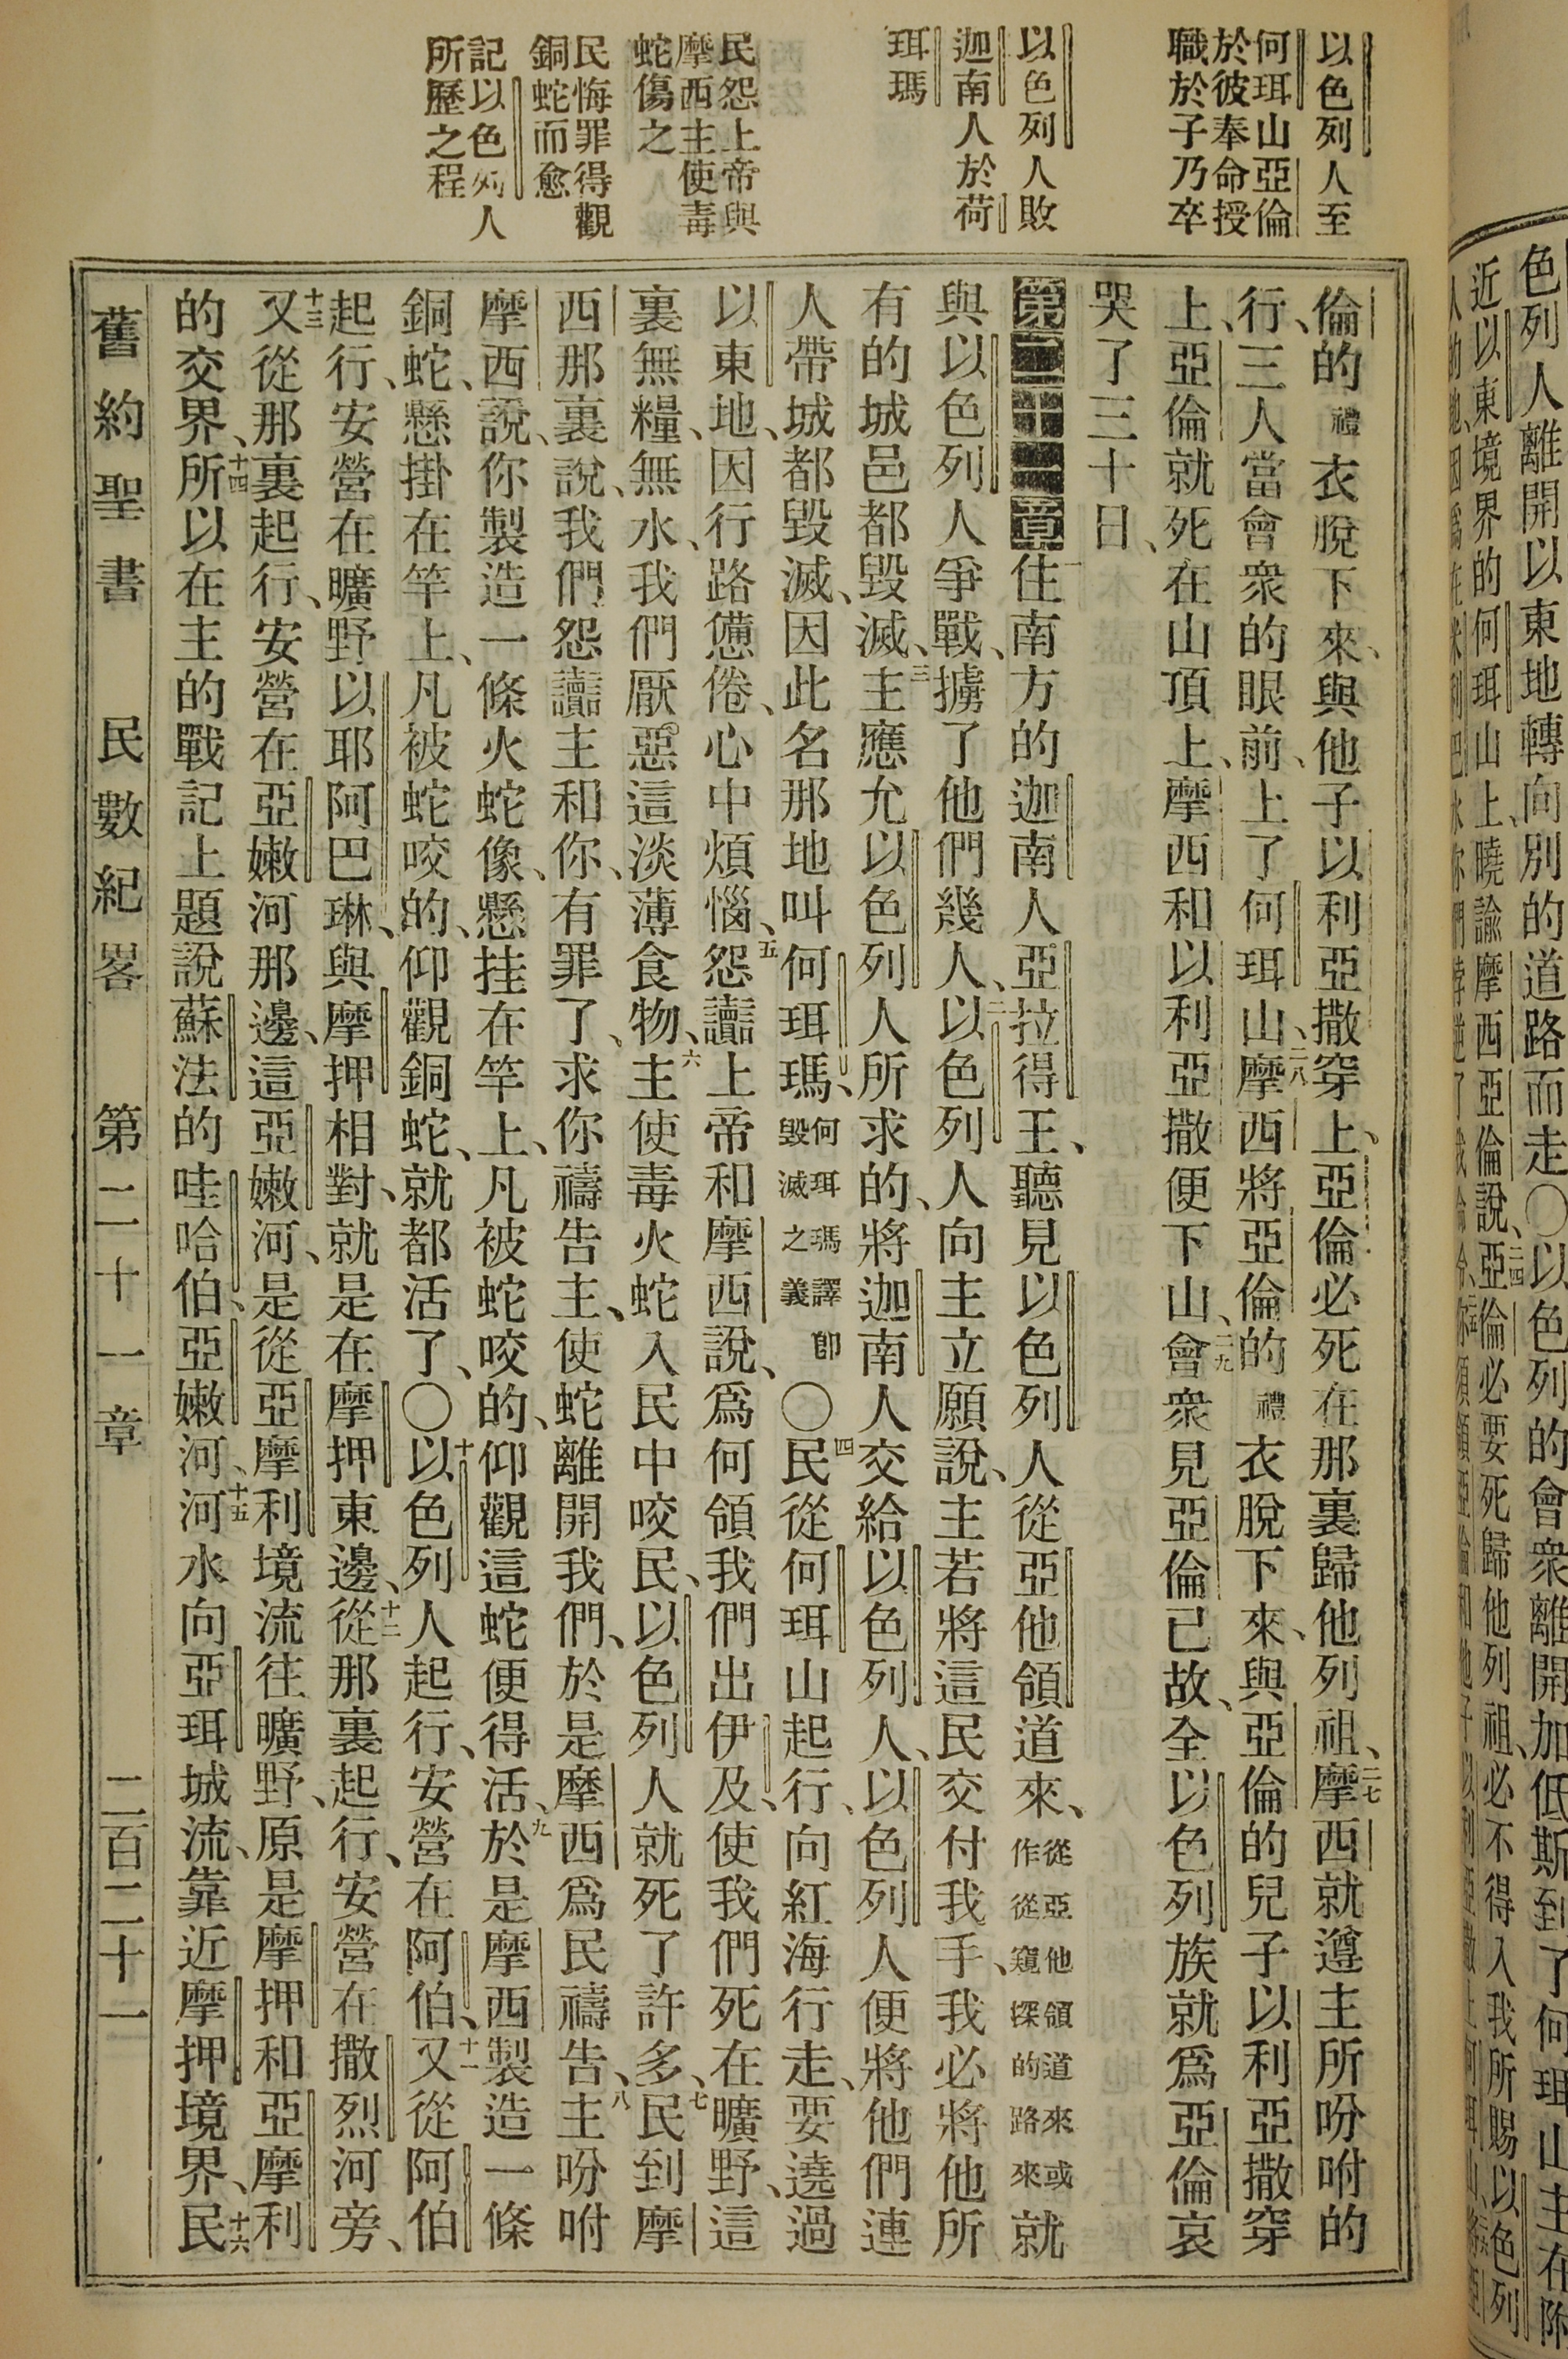 以色列人至
何珥山亞倫
於彼奉命授
職於子乃卒
以色列人敗
迦南人於荷
珥瑪
民怨上帝與
摩西主使毒
蛇傷之
民悔罪得觀
銅蛇而愈
記以色列人
所歷之程
倫的禮衣脫下來、與他子以利亞撒穿上、亞倫必死在那裏歸他列祖、二七摩西就遵主所吩咐的
行、三人當會衆的眼前、上了何珥山、二八摩西將亞倫的禮衣脫下來、與亞倫的兒子以利亞撒穿
上、亞倫就死在山頂上、摩西和以利亞撒便下山、二九會衆見亞倫已故、全以色列族就爲亞倫哀
哭了三十日、
第二十一章一住南方的迦南人亞拉得王、聽見以色列人從亞他領道來、從亞他領道來或作從窺探的路來就
與以色列人爭戰、擄了他們幾人、二以色列人向主立願說、主若將這民交付我手、我必將他所
有的城邑都毀滅、三主應允以色列人所求的、將迦南人交給以色列人、以色列人便將他們連
人帶城都毀滅、因此名那地叫何珥瑪、何珥瑪譯卽毀滅之義〇四民從何珥山起行、向紅海行走、要遶過
以東地、因行路憊倦、心中煩惱、五怨讟上帝和摩西說、爲何領我們出伊及、使我們死在曠野、這
裏無糧、無水、我們厭惡這淡薄食物、六主使毒火蛇入民中咬民、以色列人就死了許多、七民到摩
西那裏說、我們怨讟主和你、有罪了、求你禱告主、使蛇離開我們、於是摩西爲民禱告、八主吩咐
摩西說、你製造一條火蛇像、懸挂在竿上、凡被蛇咬的、仰觀這蛇便得活、九於是摩西製造一條
銅蛇、懸掛在竿上、凡被蛇咬的、仰觀銅蛇、就都活了、〇十以色列人起行、安營在阿伯、十一又從阿伯
起行、安營在曠野以耶阿巴琳、與摩押相對、就是在摩押東邊、十二從那裏起行、安營在撒烈河旁、
十三又從那裏起行、安營在亞嫩河那邊、這亞嫩河、是從亞摩利境流往曠野、原是摩押和亞摩利
的交界、十四所以在主的戰記上題說蘇法的哇哈伯、亞嫩河、十五河水向亞珥城流、靠近摩押境界、十六民
舊約聖書 民數紀畧 第二十一章 二百二十一
色列人離開以東地轉向別的道路而走〇以色列的會衆離開加低斯到了何珥山主在附
近以東境界的何珥山上、曉諭摩西亞倫說、二四亞倫必要死歸他列祖、必不得入我所賜以色列